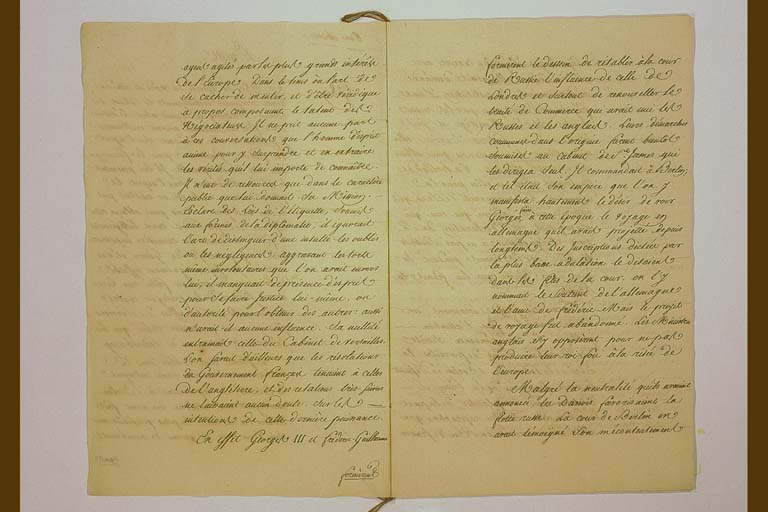 ayent agités par les plus grands intérêts
de l'Europe. Dans le tems où l'art de
se cacher de mentir, et d'être véridique
a propos composaient le talent des
Négociateurs. Il ne prit aucune part
à ces conversations que l'homme d'esprit
anime pour y surprendre et en extraire
les vérités qu'il lui importe de connaître
Il n'eut de ressources que dans le caractère
public que lui donnait sa Mission.
Esclave des Lois de l'étiquette, soumis
aux formes de la diplomatie, il ignorait
l'art de distinguer d'une insulte les oublis
ou les négligences, aggravant les torts
même involontaires que l'on avait envers
lui, il manquait de présence d'esprit
pour se faire justice lui même, ou
d'autorité pour l'obtenir des autres: aussi
n'avait il aucune influence. Sa nullité
entrainait celle du Cabinet de Versailles.
L'on savait d'ailleurs que les résolutions
du Gouvernement français tenaient à celles
de l'angleterre, et des relations très sûres
ne laissaient aucun doute sur les
intentions de cette dernière puissance.
En effet Georges III et frédéric Guillaume
formèrent
formèrent le dessein de rétablir à la cour
de Russie l'influence de celle de
Londres et surtout de renouveller le
traité de Commerce que avait uni les
Russes et les anglais. Leurs démarches
communes dans l'origine furent bientôt
soumises au cabinet de St James qui
les dirigea seul. Il commandait à Berlin,
et tel était son empire que l'on y
manifesta hautement le désir de voir
Georges faire à cette époque le voyage en
allemagne qu'il avait projetté depuis
longtems. Des Inscriptions dictées par
la plus basse adulation le désiraient
dans les fêtes de la cour. on l'y
nommait le soutient de l'allemagne
et l'ami de frédéric. Mais le projet
de voyage fut abandonné. Les Ministres
anglais s'y opposèrent pour ne pas
produire leur roi fou à la risée de
l'Europe.
Malgré la neutralité qu'ils avaient
annoncé, les Danois favorisaient la
flotte russe. La cour de Berlin en
avait témoigné son mécontentement